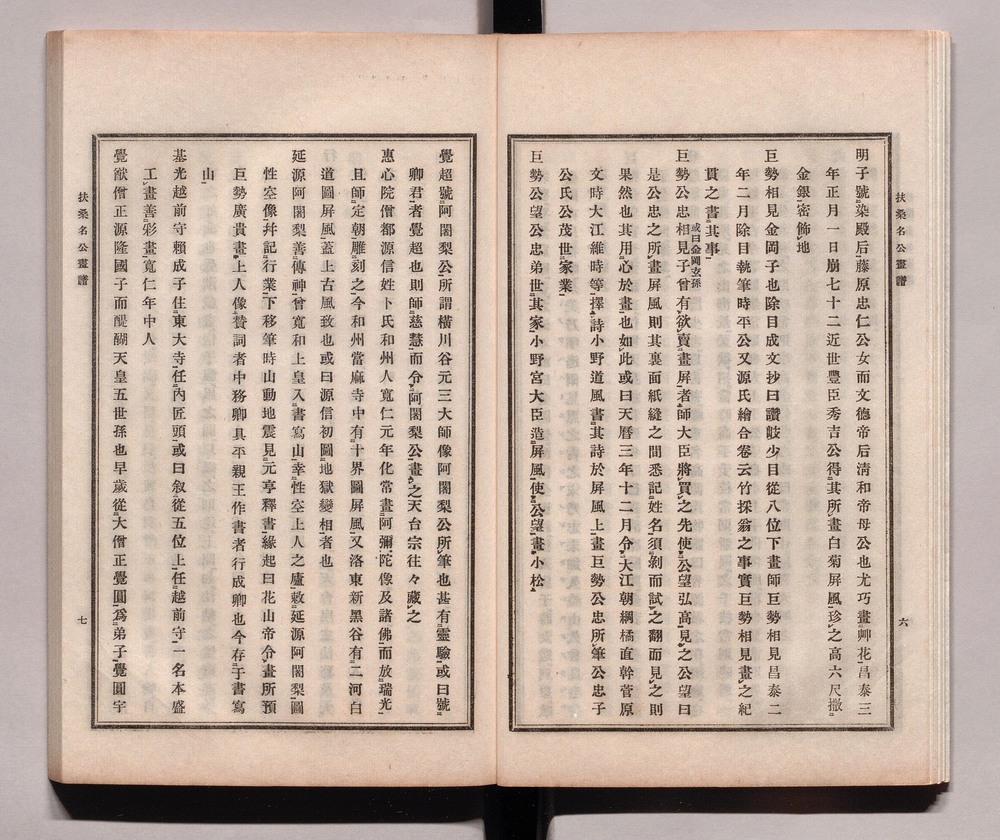 扶桑名公畫譜
六
明子號染殿后藤原忠仁公女而文德帝后淸和帝母公也尤巧畫艸花昌泰三
年正月一日崩七十二近世豐臣秀吉公得其所畫白菊屛風珍之高六尺撒
金銀密飾地
巨勢相見金岡子也除目成文抄曰讚岐少目從八位下畫師巨勢相見昌泰二
年二月除目執筆時平公又源氏繪合卷云竹採翁之事實巨勢相見畫之紀
貫之書其事
巨勢公忠相見子或曰金岡玄孫曾有欲賣畫屛者師大臣將買之先使公望弘高見之公望曰
是公忠之所畫屛風則其裏面紙縫之間悉記姓名須剝而試之翻而見之則
果然也其用心於畫也如此或曰天曆三年十二月令大江朝綱橘直幹菅原
文時大江維時等擇詩小野道風書其詩於屛風上畫巨勢公忠所筆公忠子
公氏公茂世家業
巨勢公望公忠弟世其家小野宮大臣造屛風使公望畫小松
覺超號阿闍梨公所謂橫川谷元三大師像阿闍梨公所筆也甚有靈驗或曰號
卿君者覺超也則師慈慧而令阿闍梨公畫之天台宗往々藏之
惠心院僧都源信姓卜氏和州人寬仁元年化常畫阿彌陀像及諸佛而放瑞光
且師定朝雕刻之今和州當麻寺中有十界圖屛風又洛東新黑谷有二河白
道圖屛風蓋上古風致也或曰源信初圖地獄變相者也
延源阿闍梨善傳神曾寬和上皇入書寫山幸性空上人之廬敕延源阿闍梨圖
性空像幷記行業下移筆時山動地震見元亨釋書緣起曰花山帝令畫所預
巨勢廣貴畫上人像贊詞者中務卿具平親王作書者行成卿也今存于書寫
山
基光越前守賴成子住東大寺任內匠頭或曰叙從五位上任越前守一名本盛
工畫善彩畫寬仁年中人
覺猷僧正源隆國子而醍醐天皇五世孫也早歲從大僧正覺圓爲弟子覺圓宇
扶桑名公畫譜
七